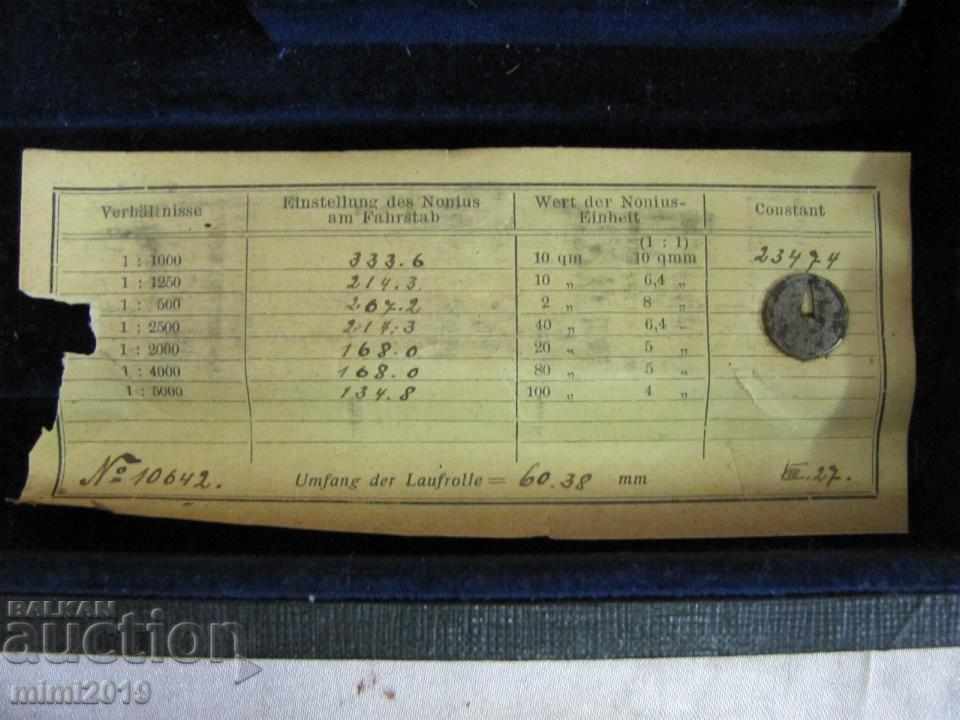 Verhältnisse Einstellung des Nonius am Fahrstab Wert der Nonius-Einheit Constant
(1 : 1)
1 : 1000 333.6 10 qm 10 qmm 23474
1 : 1250 214.3 10 „ 6,4 „
1 : 500 267.2 2 „ 8 „
1 : 2500 214.3 40 „ 6,4 „
1 : 2000 168.0 20 „ 5 „
1 : 4000 168.0 80 „ 5 „
1 : 5000 134.8 100 „ 4 „
No 10642. Umfang der Laufrolle = 60.38 mm VIII.27.
BALKAN
auction
mimi2019